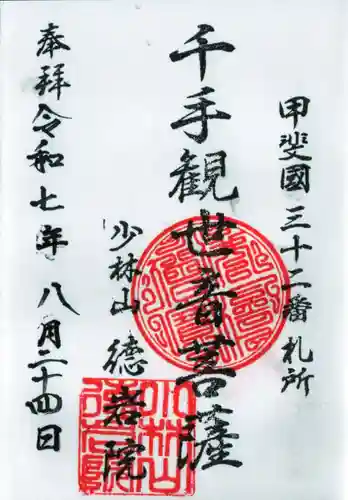 甲斐國三十二番札所
千手観世音菩薩
少林山 德岩院
奉拜 令和七年八月二十四日
少林山
德岩院